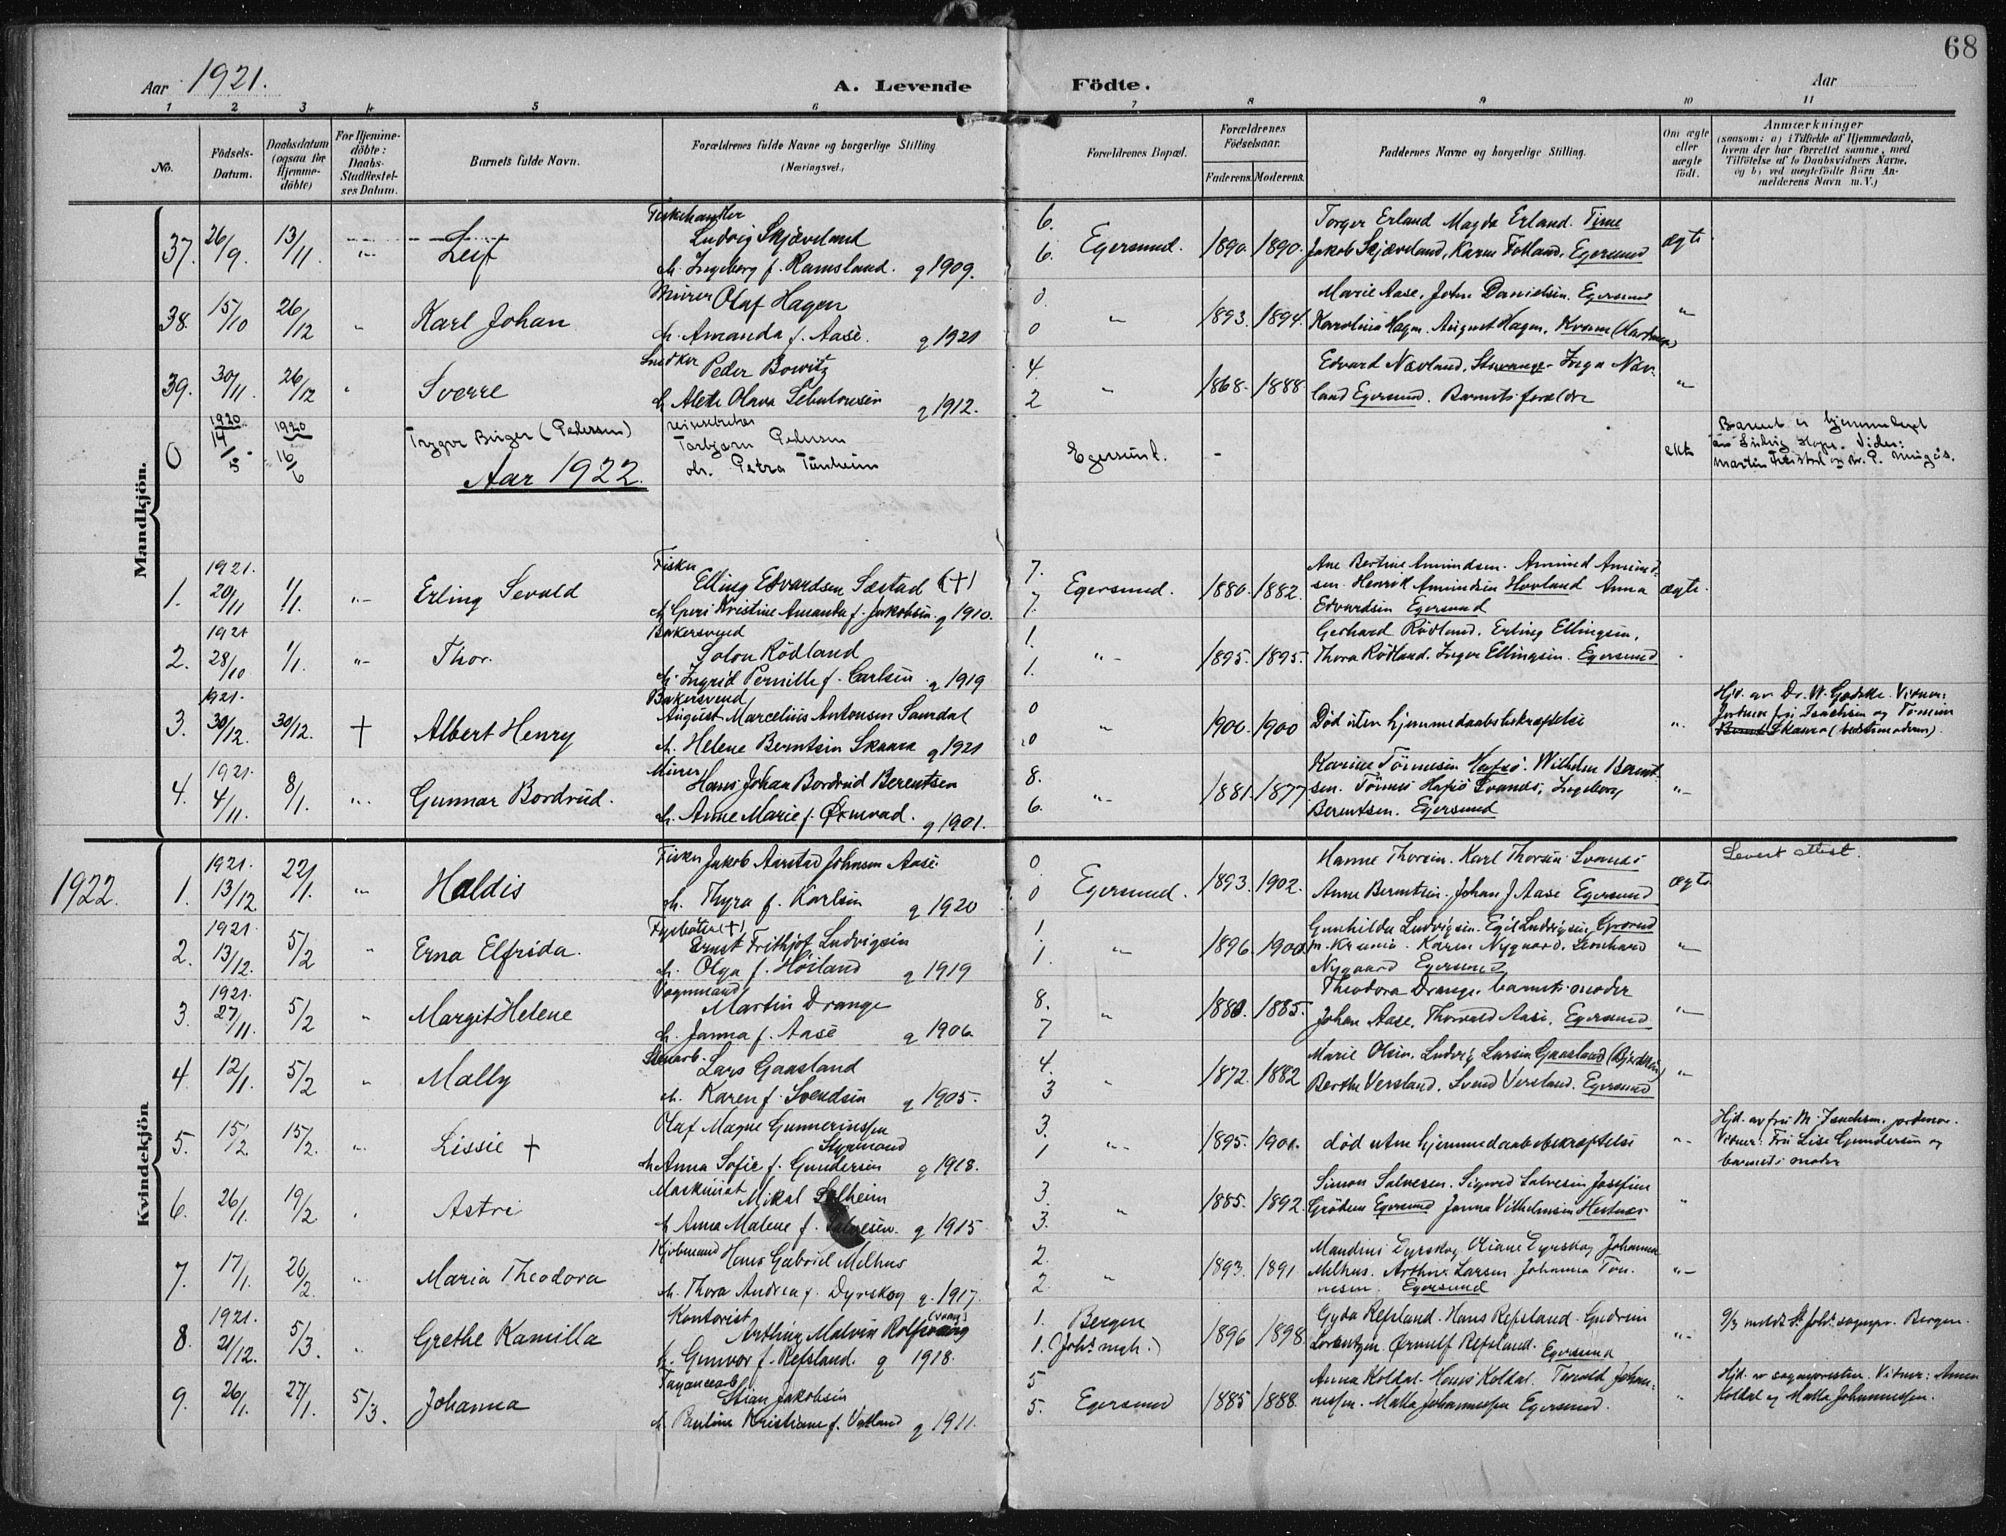 68
Aar 1921. A. Levende Födte. Aar
1 2 3 4 5 6 7 8 9 10 11
No. Födsels-Datum. Daabsdatum (ogsaa for Hjemmedöbte) For Hjemmedöbte: Daabs-Stadfæstelses Datum. Barnets fulde Navn. Forældrenes fulde Navne og borgerlige Stilling (Næringsvei.) Forældrenes Bopæl. Forældrenes Födselsaar. Faderens. Moderens. Faddernes Navne og borgerlige Stilling. Om ægte eller uægte födt. Anmærkninger (saasom: a) i Tilfælde af Hjemmedaab, hvem der har forrettet samme, med Tilföielse af to Daabsvidners Navne, og b) ved uægtefödte Börn Anmelderens Navn m. V.)
Mandkjön.
37. 26/9 13/11 Leif
Fiskehandler
Ludvig Skjæveland
Ingeborg f. Ramsland. g 1909.
6. 6. Egersund. 1890. 1890.
Torger Erland Magda Erland. Time
Jakob Skjæveland, Karen Fotland, Egersund
ægte
38. 15/10 26/12 Karl Johan
Murer Olaf Hagen
Amanda f. Aase. g 1921
0. 0 1893. 1894.
Marie Aase, John Danielsen. Egersund
Karoline Hagen. August Hagen.
39. 30/11 26/12 Sverre
Snedker Peder Bowitz
Alette Olava g 1912.
4. 2 1868. 1888.
Edvard Nævland, Stavanger. Inga Nævland Egersund. Barnets forældre
0 1920 14/5. 1920 16/6 Trygve Birger (Pedersen)
Torbjørn Pedersen
Petra Tunheim
Egersund. - ekte
Barnet er hjemmedøpt
Aar 1922.
1. 1921. 20/11 1/1. Erling Sevald
Fisker
Elling Edvardsen Sæstad (+)
Kristine Amanda f. Jakobsen. g 1910.
7. 7. Egersund. 1880. 1882.
Ane Bertine Amundsen. Amund Amundsen. Henrik Amundsen Hovland Anna
Edvardsen Egersund
ægte.
2. 1921 28/10 1/1. Thor.
Bakersvend
Solon Rödland
Ingrid Pernille f. Carlsen. g 1919
1. 1. 1895. 1895.
Gerhard Rödland. Erling Ellingsen,
Thora Rödland. Inger Ellingsen. Egersund
3. 1921. 30/12. 30/12. + Albert Henry
Bakersvend
August Marcelius Antonsen Samdal
Helene Berntsen Skaara g 1921
0 0 1900. 1900
Död uten hjemmedaabsbekræftelse
Skaara (bedstemoderen).
4. 1921. 4/11. 8/1. Gunnar Bordvud.
Murer
Hans Johan Bordvud Berentsen
Anne Marie f. g 1901.
8. 6. 1881. 1877
Karine Tönnesen Hafsö. Wilhelm Berentsen. Tönnes Hafsö Svanes, Ingeborg
Berentsen. Egersund
Kvindekjön
1922. 1. 1921. 13/12 22/1. Haldis
Fisker Jakob Aarstad Johnsen Aase
Thyra f. Karlsen g 1920
0. 0 Egersund. 1893. 1902.
Hanne Thorsen. Karl Thorsen Svanes
Anne Berentsen. Johan J Aase Egersund
ægte
Levert attest.
2. 1921. 13/12. 5/2 Erna Elfrida.
Fyrböter (+)
Ernst Frithjof Ludvigsen
Olga f. Höiland g 1919
1 1. 1896. 1900
Gunhilda Ludvigsen. Egil Ludvigsen,
Karen Nygaard. Leonhard
Nygaard Egersund
3. 1921. 27/11. 5/2 Margit Helene
Vognmand
Martin Drange
Janna f. Aase g 1906.
8. 7 1880. 1885.
Theodora Drange, barnets moder
Johan Aase, Thorvald Aase. Egersund
4 12/1. 5/2 Mally
Stenarb. Lars Gaasland
Karen f. Svendsen g 1905.
4. 3 1872. 1882
Marie Olsen. Ludvig Larsen Gaasland
Berthe Versland. Svend Versland. Egersund
5. 15/2 15/2. Lissie +
Olaf Magne Gunneriussen
Styrmand
Anna Sofie f. Gundersen g 1918.
3. 1 1895. 1901.
död uten hjemmedaabsbekræftelse
Hjd. av fru M. Isachsen, jordmor.
Vitner: Fru Lise Gundersen og
barnets moder
6. 26/1. 19/2 Astri
Maskinist Mikal Solheim
Anna Malene f. Salvesen. g 1915
3. 3. 1885. 1892.
Simon Salvesen. Sigurd Salvesen Josefine
Grödem Egersund Janna Vilhelmsen Hestnes
7. 17/1. 26/2. Maria Theodora
Kjöbmand Hans Gabriel Melhus
Thora Andrea f. Dyrskog g. 1917.
2. 2. 1893. 1891
Maudius Dyrskog Oliane Dyrskog Johanna
Melhus. Arthur Larsen. Johanna Tönnesen. Egersund
8. 1921. 21/12. 5/3. Grethe Kamilla
Kontorist
Arthur Malvin Rolfsvaag
Gunvor f. Refsland. g 1918.
1. 1. Bergen (Johs. mgh.) 1896 1898.
Gyda Refsland. Hans Refsland. Gudrun
Lorentzen. Ørnulf Refsland. Egersund
9/3 meldt St. Johs. sognepr. Bergen.
9. 26/1. 27/1. 5/3. Johanna
Fayancearb.
Stian Jakobsen
Pauline Kristiane f. Vatland g 1911.
5 5. Egersund 1885 1888.
Anna Koldal. Hans Koldal. Tervald Johannessen. Malla Johannessen Egersund.
Hjd. av sognepresten. Vitner: Anna
Koldal og Malla Johannessen.